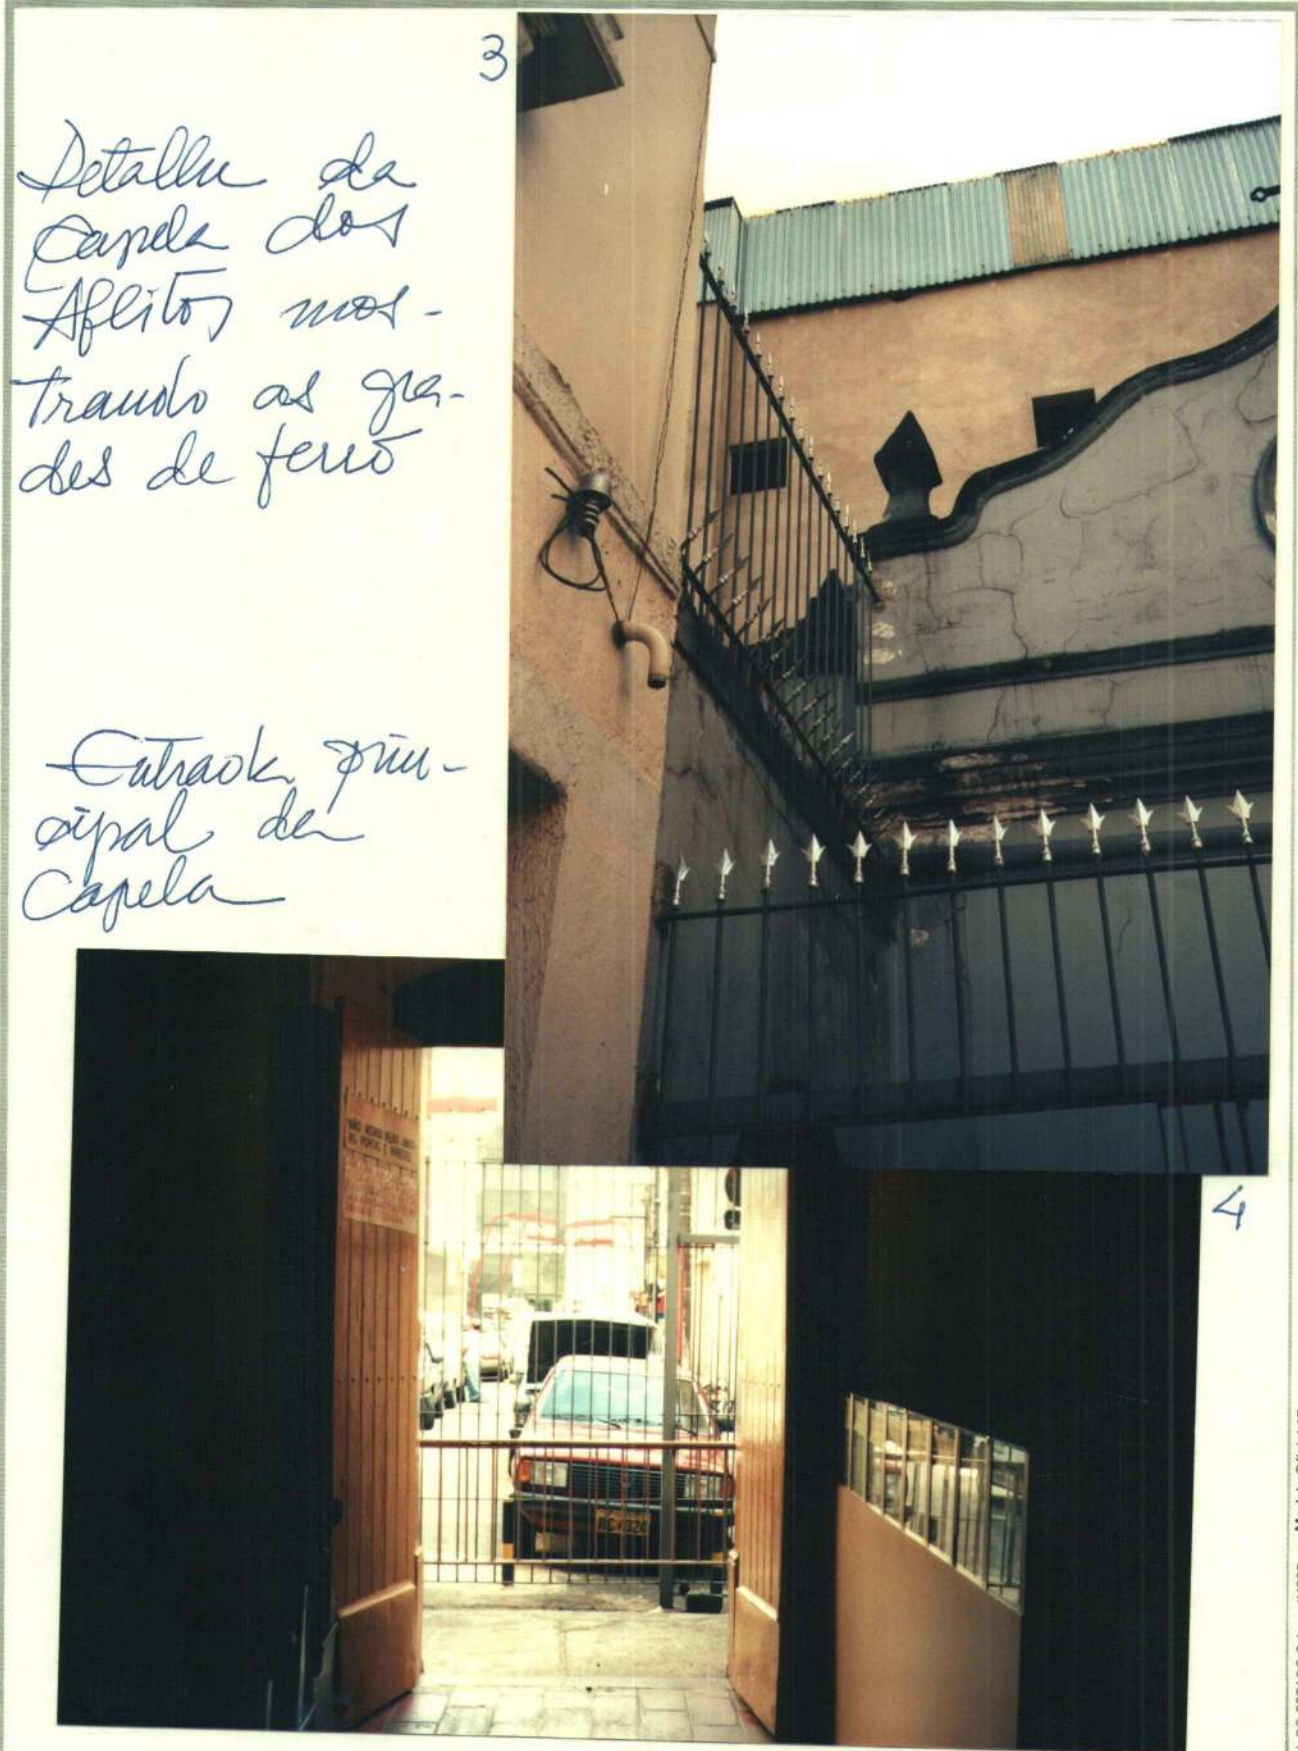 3
Detalhe da
Capela dos
Aflitos mos-
trando as gra-
des de ferro
Entrada prin-
cipal da
Capela
4